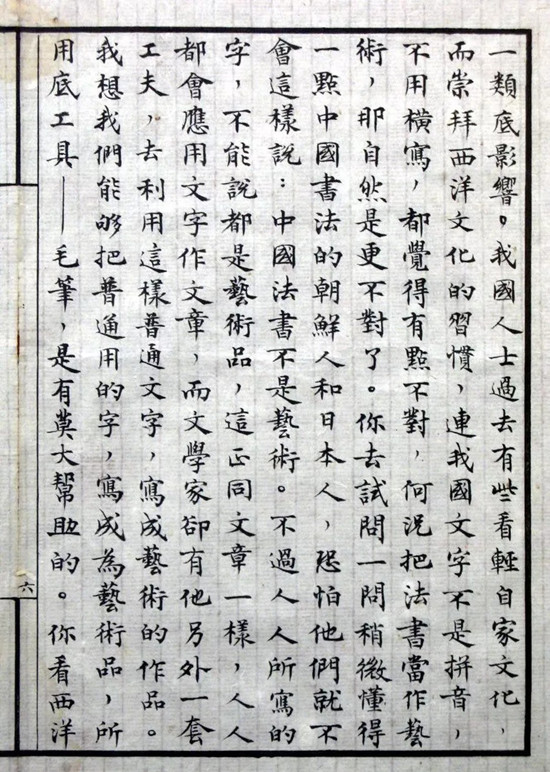 一類底影響。我國人士過去有些看輕自家文化，
而崇拜西洋文化的習慣，連我國文字不是拼音，
不用橫寫，都覺得有點不對，何況把法書當作藝
術，那自然是更不對了。你去試問一問稍微懂得
一點中國書法的朝鮮人和日本人，恐怕他們就不
會這樣說：中國法書不是藝術。不過人人所寫的
字，不能說都是藝術品，這正同文章一樣，人人
都會應用文字作文章，而文學家卻有他另外一套
工夫，去利用這樣普通文字，寫成藝術的作品。
我想我們能够把普通用的字，寫成為藝術品，所
用底工具——毛筆，是有莫大幫助的。你看西洋
六